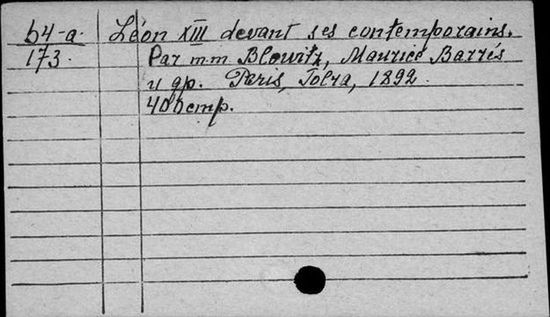 64-a. Léon XIII devant ses contemporains.
173. Par m.m Blowitz, Maurice Barrés
и др. Paris, Tolra, 1892.
400 стр.